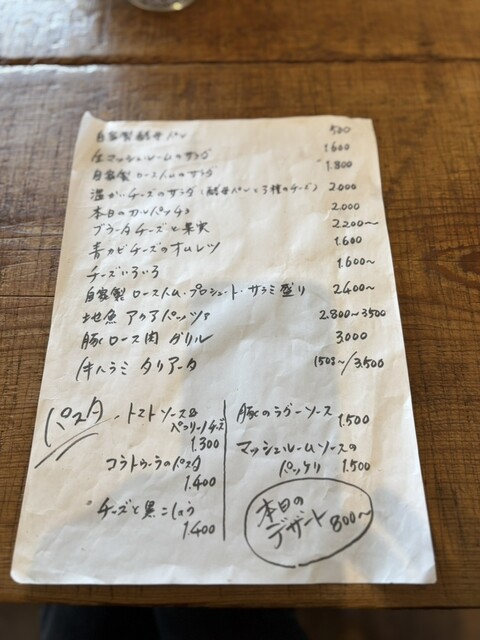 自家製 酵母パン 500
生マッシュルームのサラダ 1.600
自家製 ロースハムのサラダ 1.800
温かいチーズのサラダ (酵母パンと3種のチーズ) 2.000
本日のカルパッチョ 2.000
ブラータチーズと果実 2200〜
青カビチーズのオムレツ 1.600
チーズいろいろ 1.600〜
自家製 ロースハム・プロシュート・サラミ盛り 2400〜
地魚 アクアパッツァ 2.800〜3500
豚ロース肉 グリル 3.000
牛ハラミ タリアータ 150g〜/3.500
パスタ
・トマトソース&
ペコリーノチーズ
1.300
コラトゥーラのパスタ
1.400
チーズと黒こしょう
1.400
豚のラグーソース
1.500
マッシュルームソースの
パッケリ 1.500
本日の
デザート 800〜